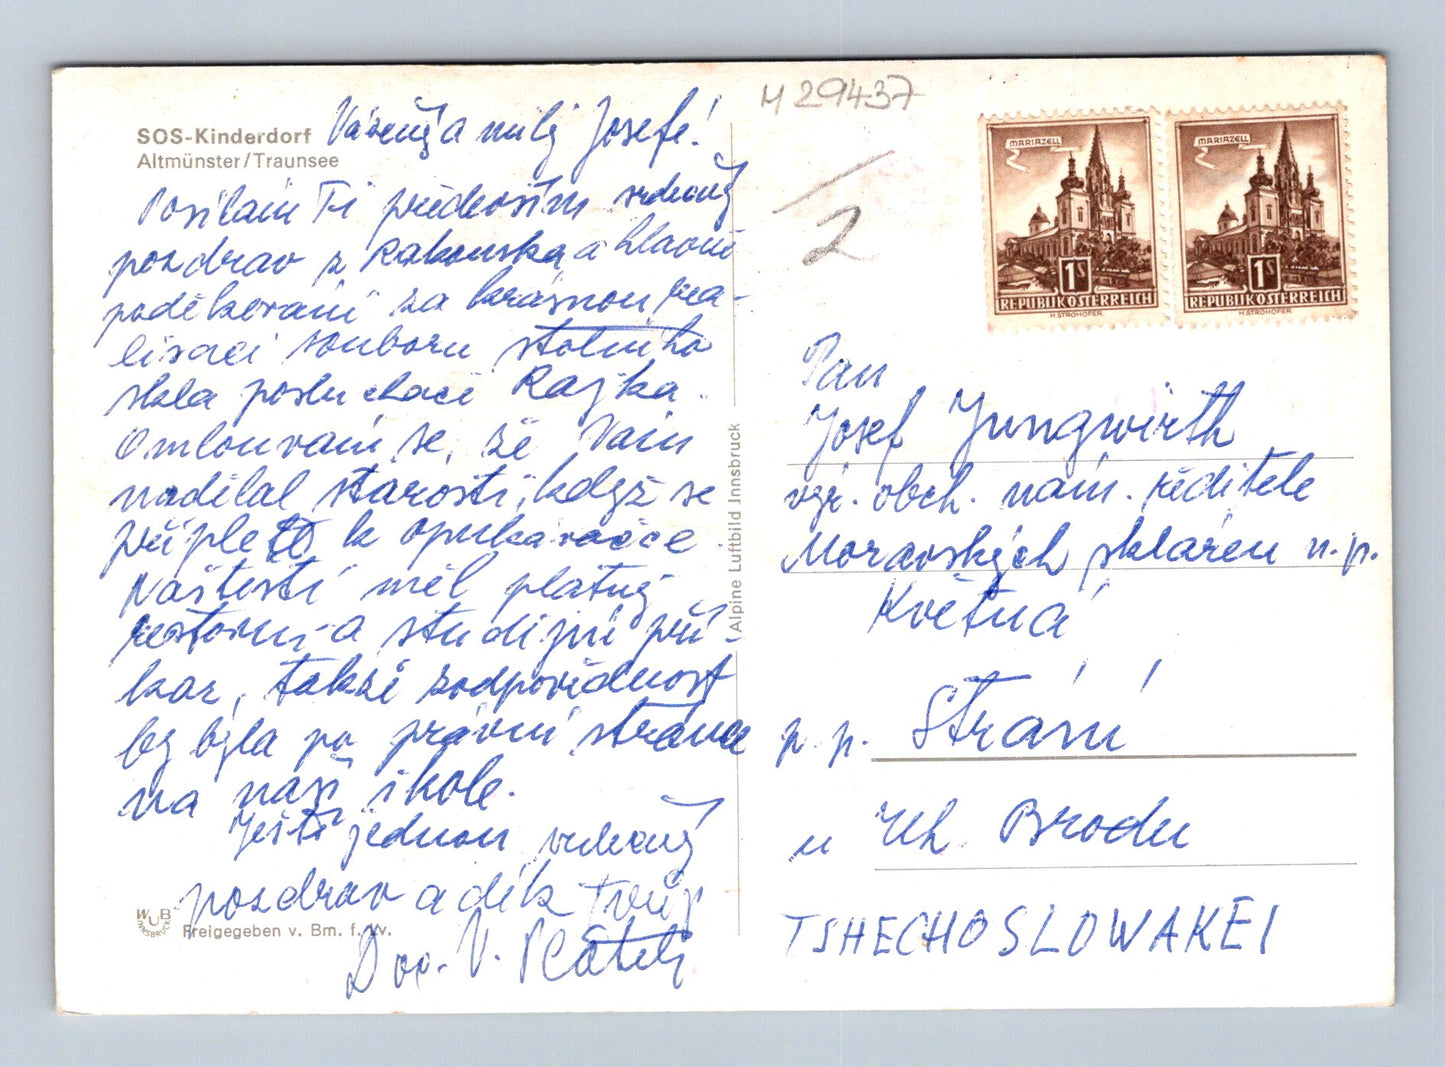 SOS-Kinderdorf
Altmünster/Traunsee
Vážený a milý Josefe!
Posílám Ti především srdečný
pozdrav z Rakouska a hlavně
poděkování za krásnou rea-
lisaci souboru stolního
skla posluchače Rajka.
Omlouvám se, že Vám
nadělal starosti, když se
připletl k opukávačce.
Naštěstí měl platný
cestovní a studijní pří-
kaz, takže zodpovědnost
by byla po právní stránce
na naší škole.
Ještě jednou srdečný
pozdrav a dík Tvůj
Doc. V. Plátek
WUB
INNSBRUCK
Freigegeben v. Bm. f. Vv.
Alpine Luftbild Innsbruck
M 29437
2
MARIAZELL
1S
REPUBLIK ÖSTERREICH
H. STROHOFER
MARIAZELL
1S
REPUBLIK ÖSTERREICH
H. STROHOFER
Pan
Josef Jungwirth
obch. nám. ředitele
Moravských skláren n.p.
Květná
p. p. Strání
u Uh. Brodu
TSHECHOSLOWAKEI